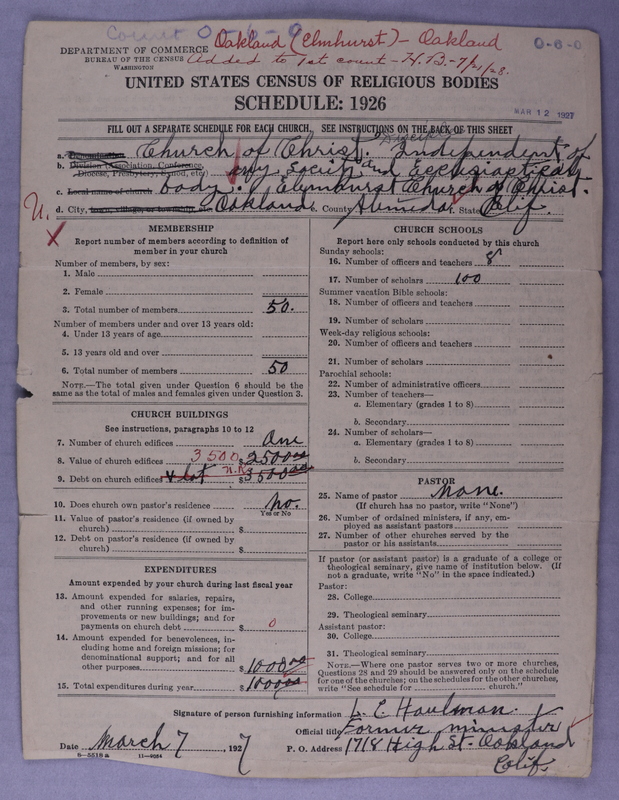 Count 0-0-0
Oakland (Elmhurst) - Oakland
0-0-0
DEPARTMENT OF COMMERCE
BUREAU OF THE CENSUS
WASHINGTON
Added to 1st count - H.B. - 7/21/28.
UNITED STATES CENSUS OF RELIGIOUS BODIES
SCHEDULE: 1926
MAR 12 1927
FILL OUT A SEPARATE SCHEDULE FOR EACH CHURCH. SEE INSTRUCTIONS ON THE BACK OF THIS SHEET
a. Denomination, Church of Christ. Independent of
b. Division (Association, Conference, any Society and Ecclesiaptical
Diocese, Presbytery, Synod, etc.)
c. Local name of church body. Elymhurst Church of Christ.
d. City, town, village, or township, etc. Oakland e. County Alameda f. State Calif.
U.
X
MEMBERSHIP
Report number of members according to definition of
member in your church
Number of members, by sex:
1. Male
2. Female
3. Total number of members 50.
Number of members under and over 13 years old:
4. Under 13 years of age
5. 13 years old and over
6. Total number of members 50
NOTE.—The total given under Question 6 should be the
same as the total of males and females given under Question 3.
CHURCH BUILDINGS
See instructions, paragraphs 10 to 12
7. Number of church edifices One
8. Value of church edifices 3500 $2500.00
9. Debt on church edifices & lot N.R. $3500.00
10. Does church own pastor's residence No.
Yes or No
11. Value of pastor's residence (if owned by
church) $
12. Debt on pastor's residence (if owned by
church) $
EXPENDITURES
Amount expended by your church during last fiscal year
13. Amount expended for salaries, repairs,
and other running expenses; for im-
provements or new buildings; and for
payments on church debt $ 0
14. Amount expended for benevolences, in-
cluding home and foreign missions; for
denominational support; and for all
other purposes $1000.00
15. Total expenditures during year $1000.00
CHURCH SCHOOLS
Report here only schools conducted by this church
Sunday schools:
16. Number of officers and teachers 8
17. Number of scholars 100
Summer vacation Bible schools:
18. Number of officers and teachers
19. Number of scholars
Week-day religious schools:
20. Number of officers and teachers
21. Number of scholars
Parochial schools:
22. Number of administrative officers
23. Number of teachers—
a. Elementary (grades 1 to 8)
b. Secondary
24. Number of scholars—
a. Elementary (grades 1 to 8)
b. Secondary
PASTOR
25. Name of pastor None.
(If church has no pastor, write "None")
26. Number of ordained ministers, if any, em-
ployed as assistant pastors
27. Number of other churches served by the
pastor or his assistants
If pastor (or assistant pastor) is a graduate of a college or
theological seminary, give name of institution below. (If
not a graduate, write "No" in the space indicated.)
Pastor:
28. College
29. Theological seminary
Assistant pastor:
30. College
31. Theological seminary
NOTE.—Where one pastor serves two or more churches,
Questions 28 and 29 should be answered only on the schedule
for one of the churches; on the schedules for the other churches,
write "See schedule for church."
Signature of person furnishing information L. C. Haulman.
Official title Former minister
Date March 7, 1927 P. O. Address 1718 High St. Oakland
Calif.
6—5518 a 11—9084